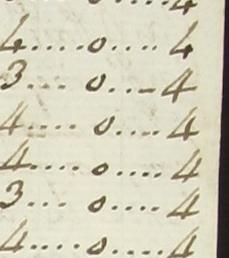 0.....4
4....0....4
3... 0....4
4....0....4
4....0....4
3... 0....4
4....0....4